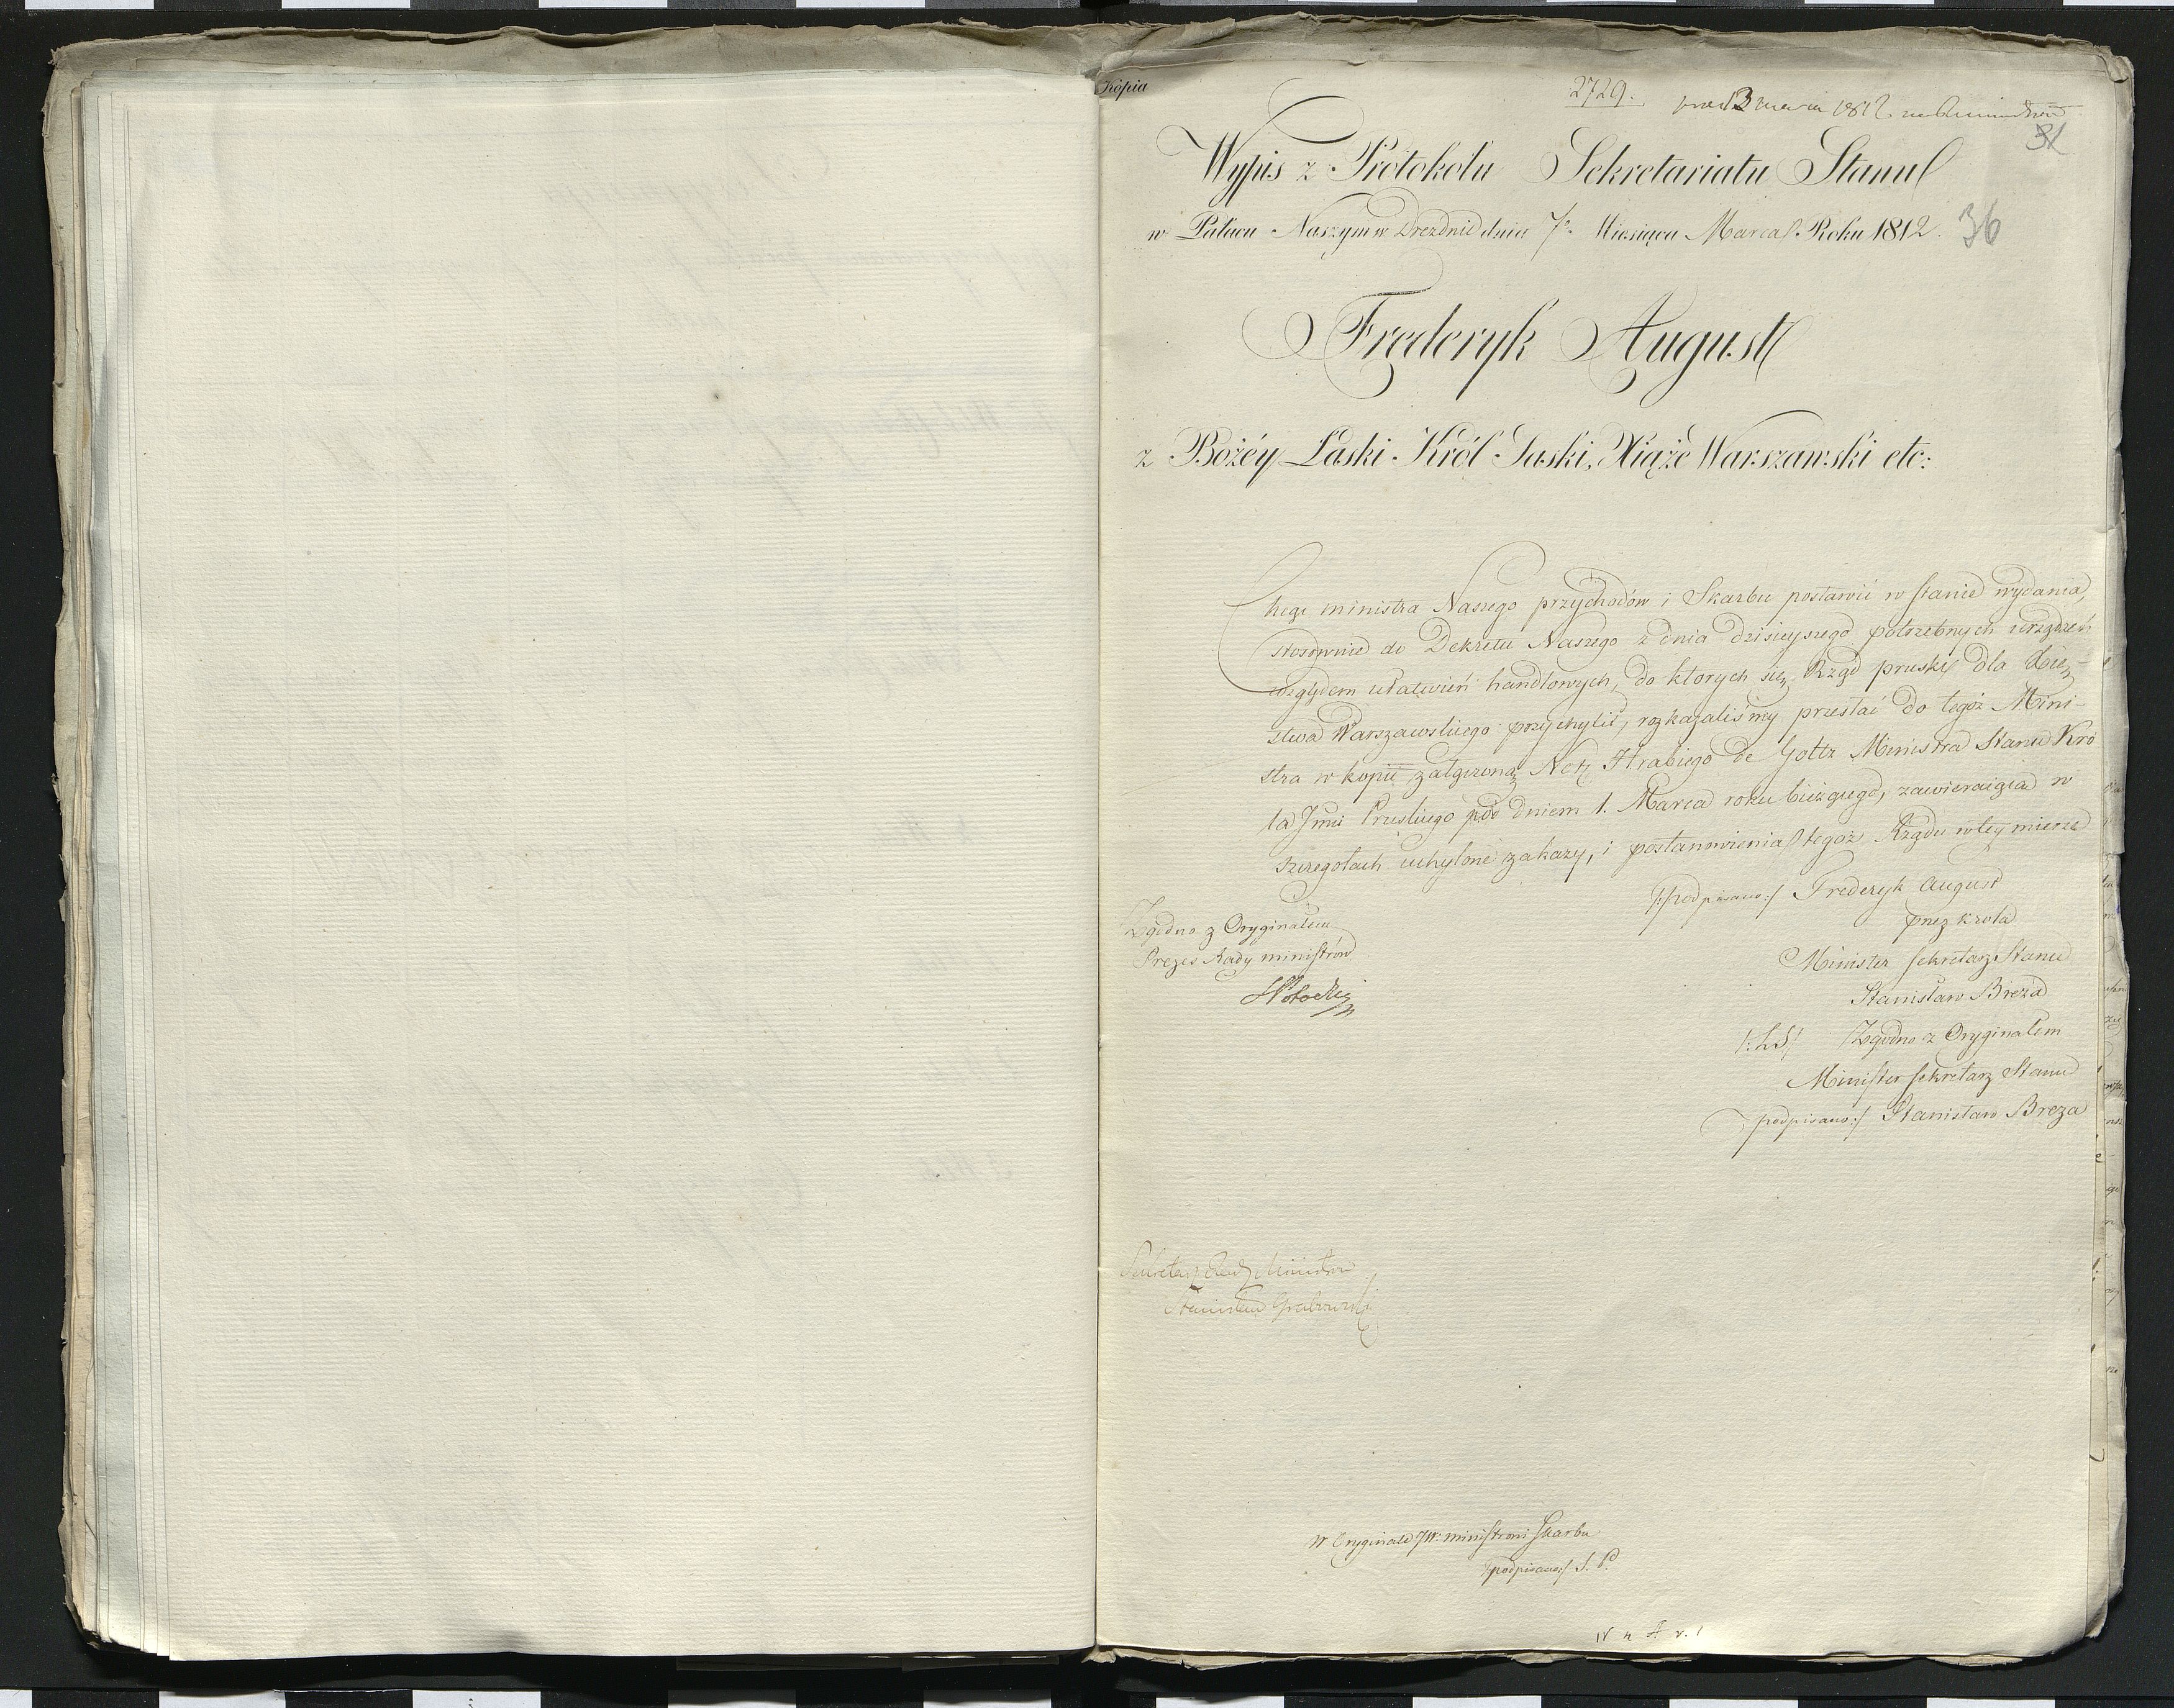 Kopia
2729.
31
Wypis z Protokołu Sekretariatu Stanu
w Pałacu Naszym w Dreznie dnia 7º Miesiąca Marca Roku 1812.
36
Frederyk August
z Bożéy Łaski Król Saski, Xiąże Warszawski etc:
Chcąc ministra Naszego przychodów i Skarbu postawić w stanie wydania,
stosownie do Dekretu Naszego z dnia dzisieyszego potrzebnych urządzeń
względem ułatwień handlowych, do ktorych się Rząd pruski dla Xię-
stwa Warszawskiego przychylił, rozkazaliśmy przesłać do tegoż Mini-
stra w kopii załączoną Notę Hrabiego de Goltz Ministra Stanu Kró
la Jmci Pruskiego pod dniem 1. Marca roku bieżącego, zawieraiącą w
szczegołach uchylone zakazy, i postanowienia tegoż Rządu w tey mierze
/:podpisano:/ Frederyk August
przez krola
Minister Sekretarz Stanu
Stanisław Breza
/:LS:/ Zgodno z Oryginałem
Minister Sekretarz Stanu
podpisano:/ Stanisław Breza
Zgodno z Oryginałem
Prezes Rady ministrów
Potocki
Sekretarz Rady Ministrów
Stanisław Grabowski
W Oryginale JW. ministrowi Skarbu
/:podpisano:/ S. P.